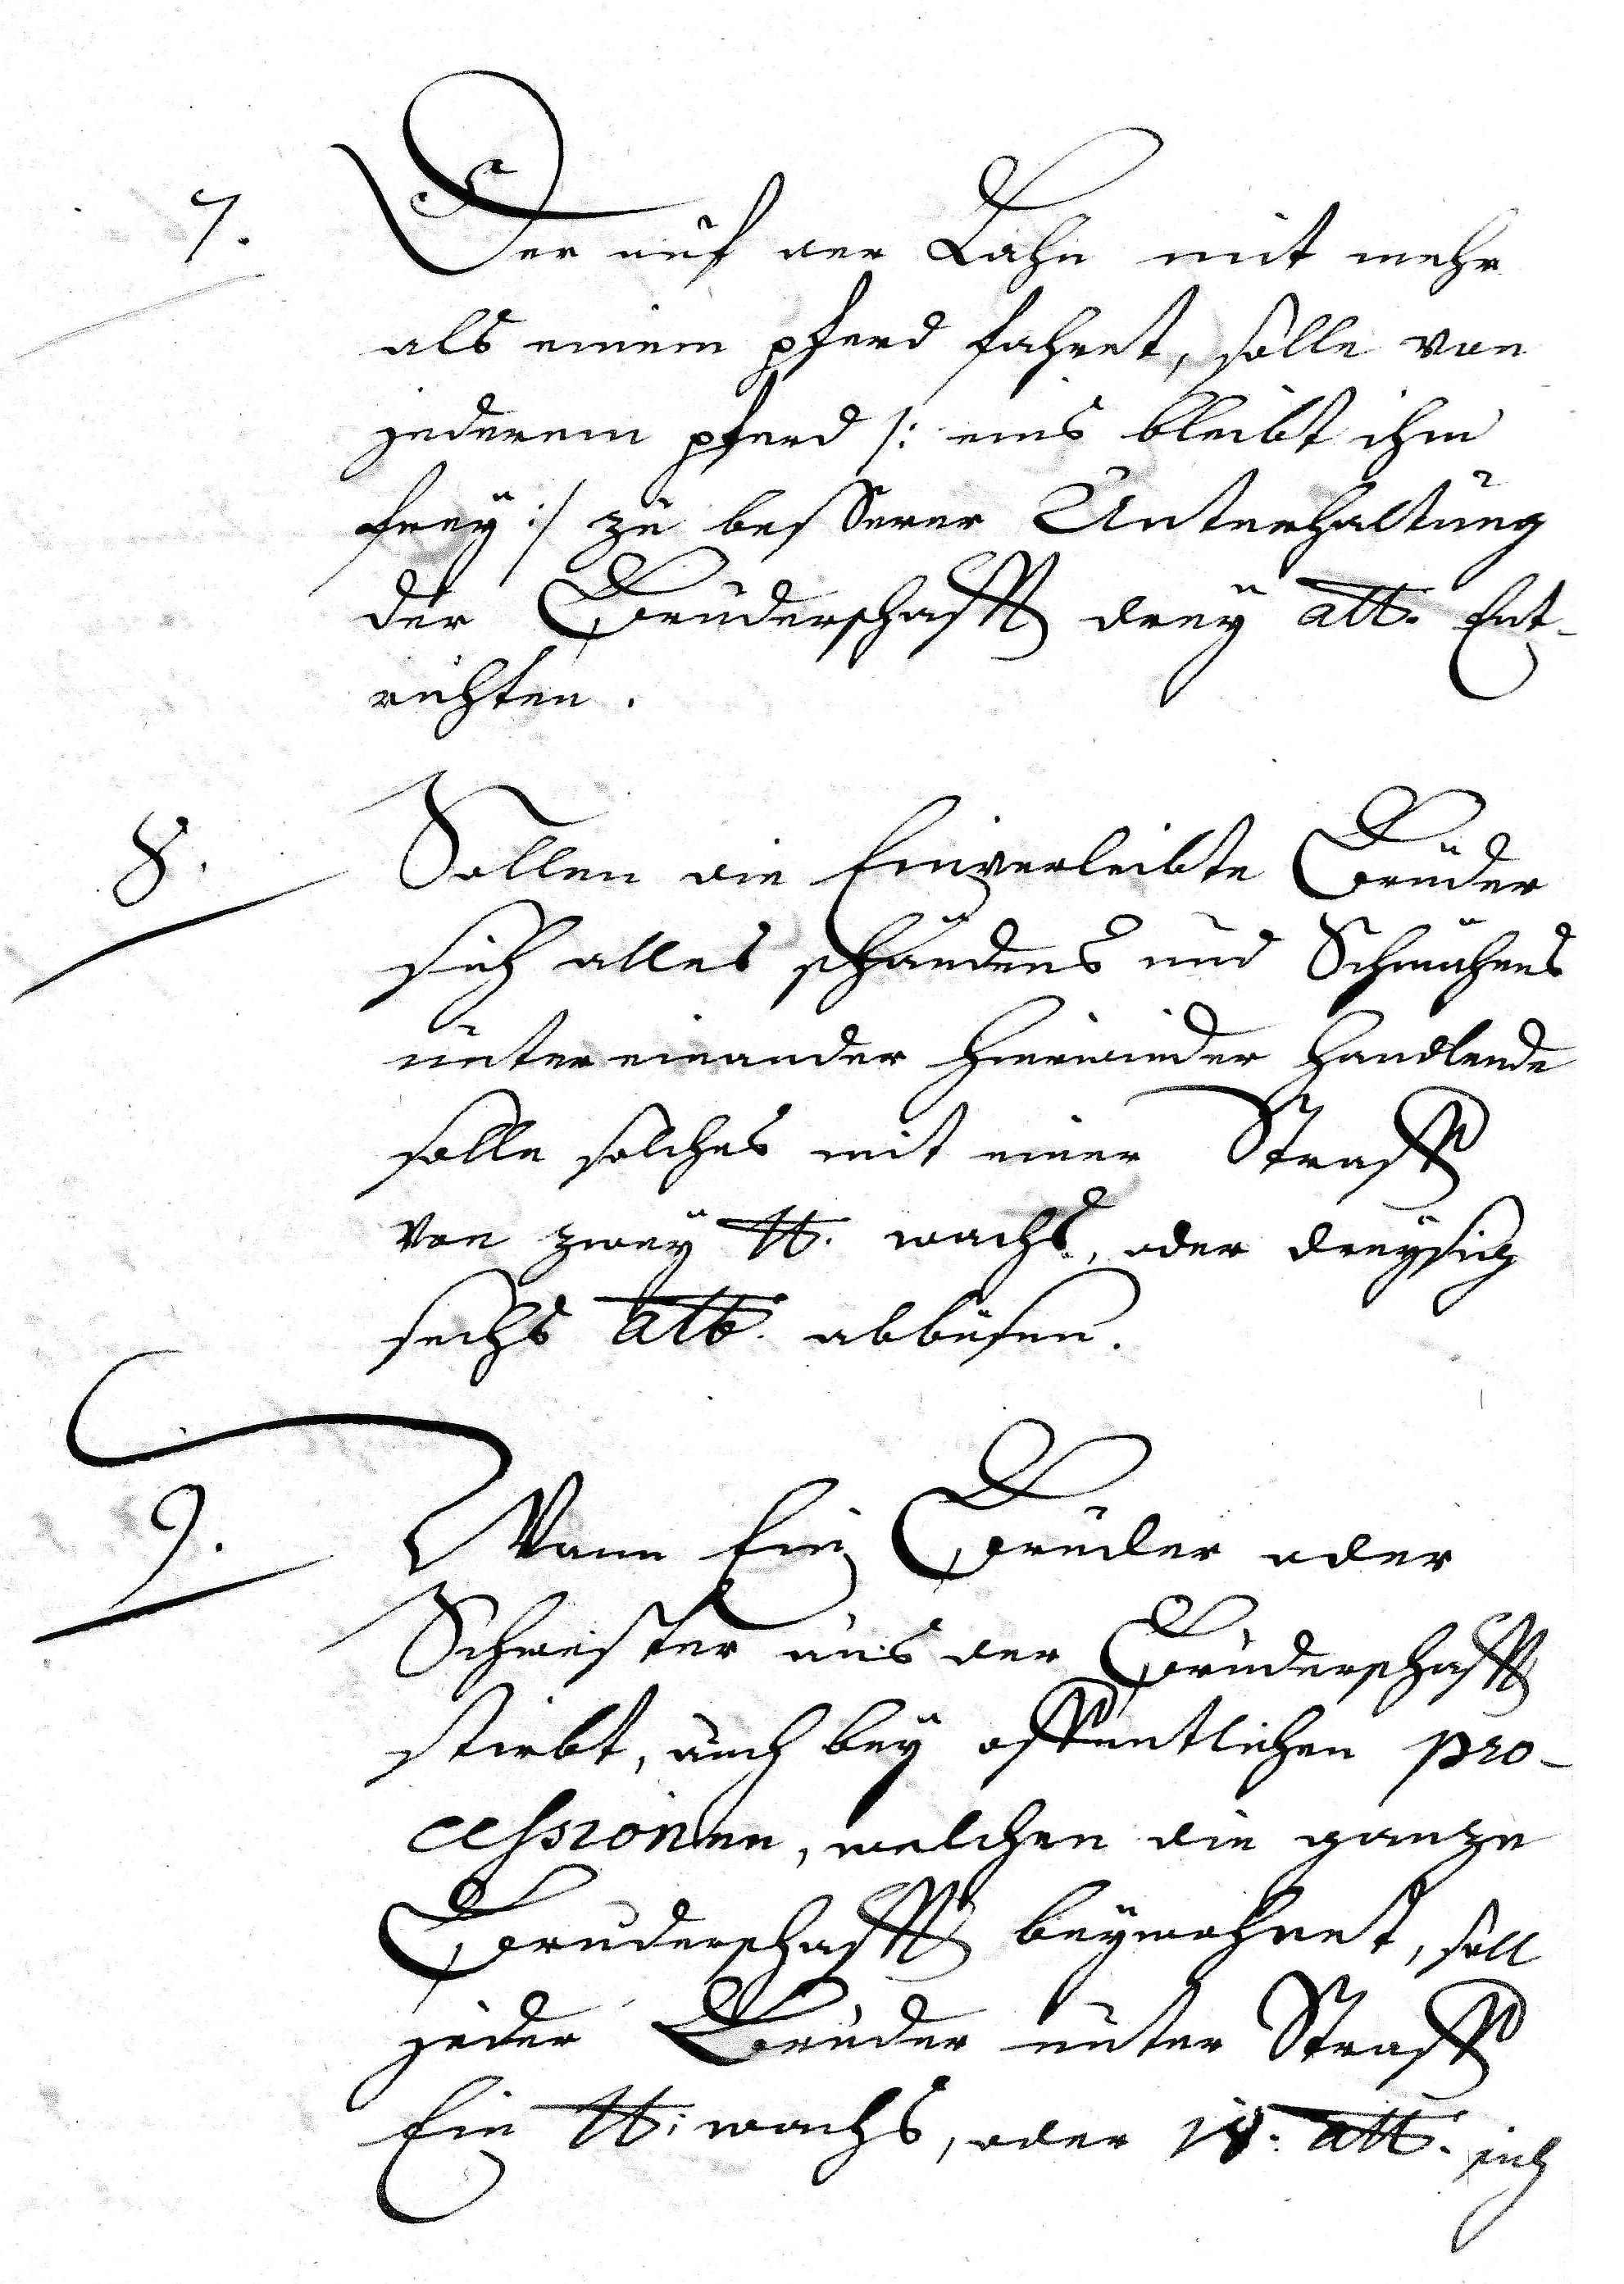 7. Der auf der Lahn mit mehr
als einem pferd fahret, solle von
jederem pferd /: eins bleibt ihm
freÿ :/ zu besserer Unterhaltung
der Bruderschafft dreÿ alb. Ent-
richten.
8. Sollen die Einverleibte Brüder
sich alles schändens und Schmähens
untereinander hierwieder handlende
solle solches mit einer Straff
von zweÿ ℔. wachs, oder dreÿsig
sechs alb. abbüsen.
9. Wann Ein Bruder oder
Schwester aus der Bruderschafft
stirbt, auch beÿ offentlichen pro-
cessionen, welchen die ganze
Bruderschafft beÿwohnet, soll
jeder Bruder unter Straff
Ein ℔: wachs, oder 18. alb. sich